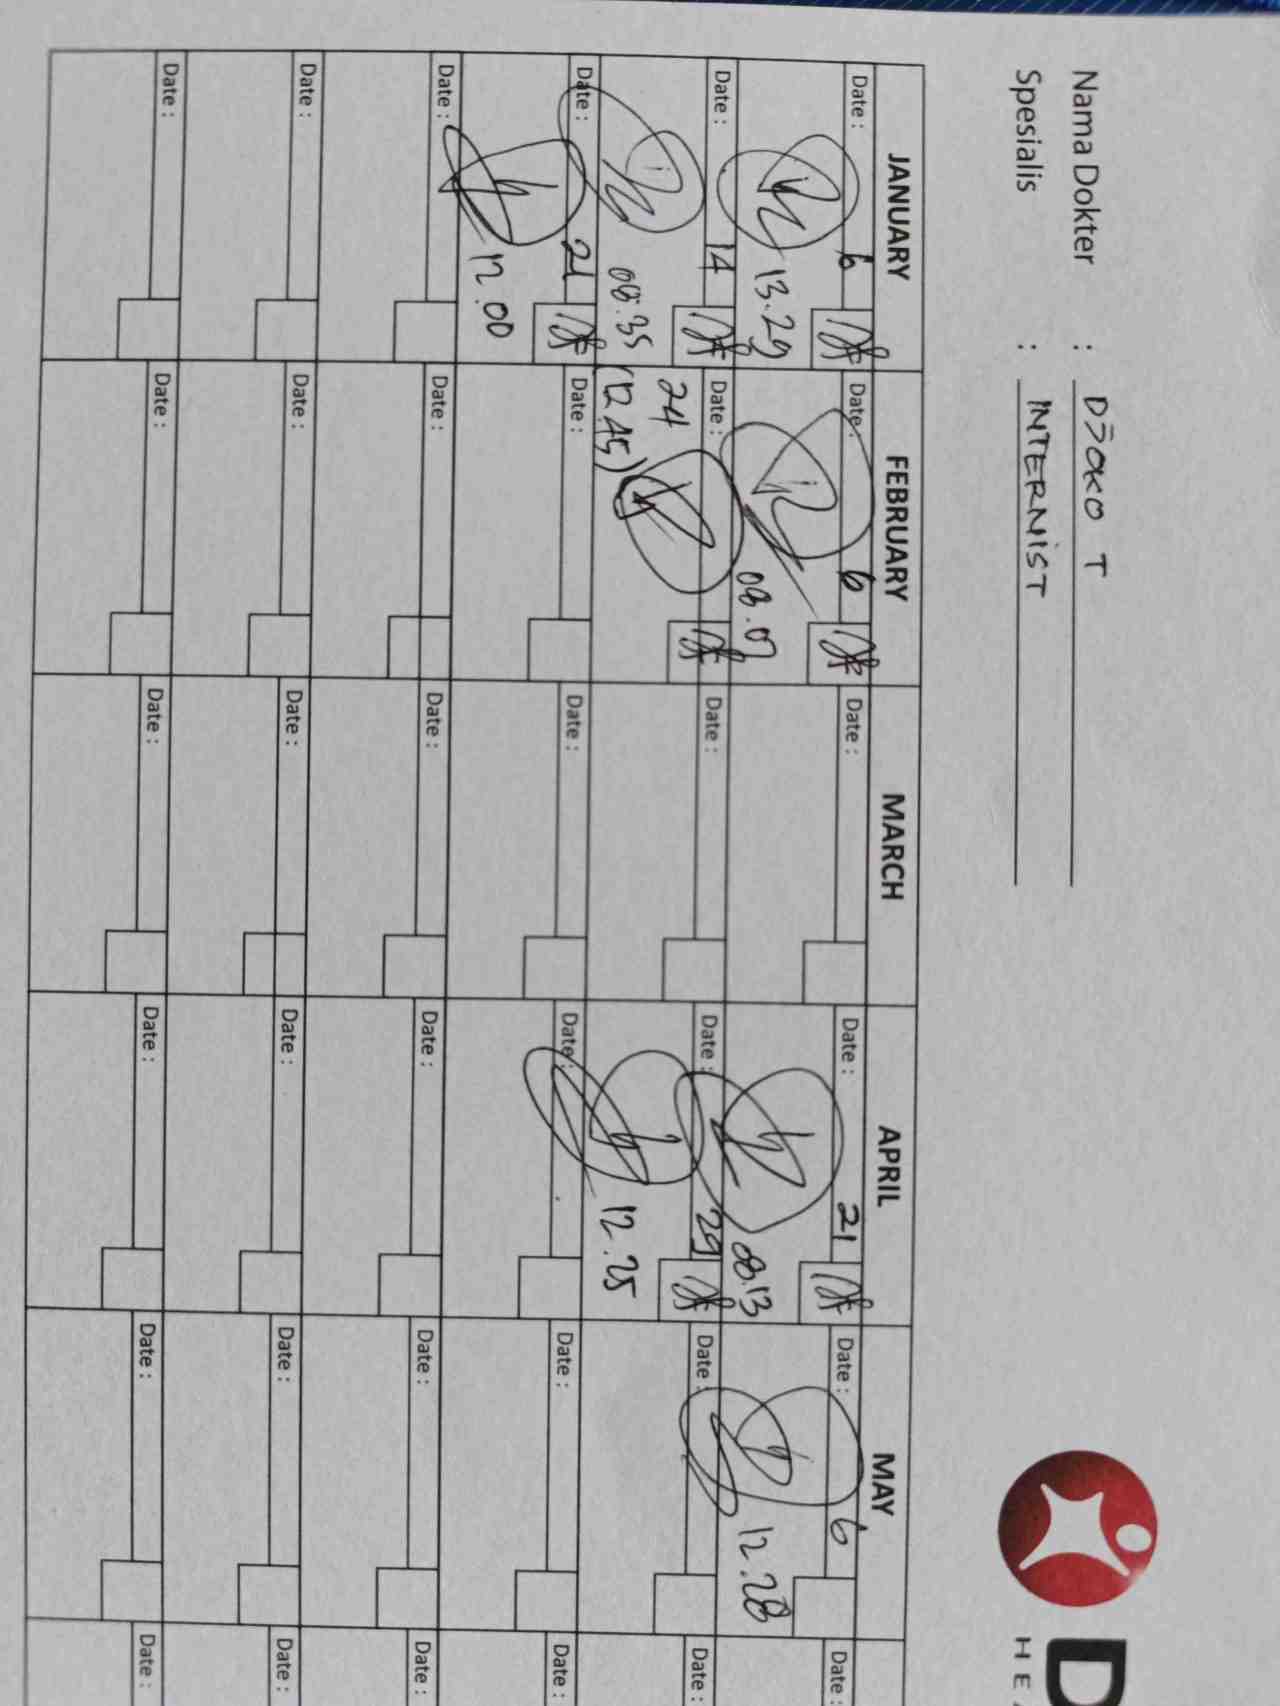 Nama Dokter : DJOKO T
Spesialis : INTERNIST
D
HEA
JANUARY FEBRUARY MARCH APRIL MAY
Date : 6 Date : 6 Date : Date : 21 Date : 6 Date :
13.29 08.07 08.13 12.28
Date : 14 Date : Date : Date : 29 Date : Date :
08.35 24 12.25
(12.45)
Date : 21 Date : Date : Date : Date : Date :
12.00
Date : Date : Date : Date : Date : Date :
Date : Date : Date : Date : Date : Date :
Date : Date : Date : Date : Date : Date :